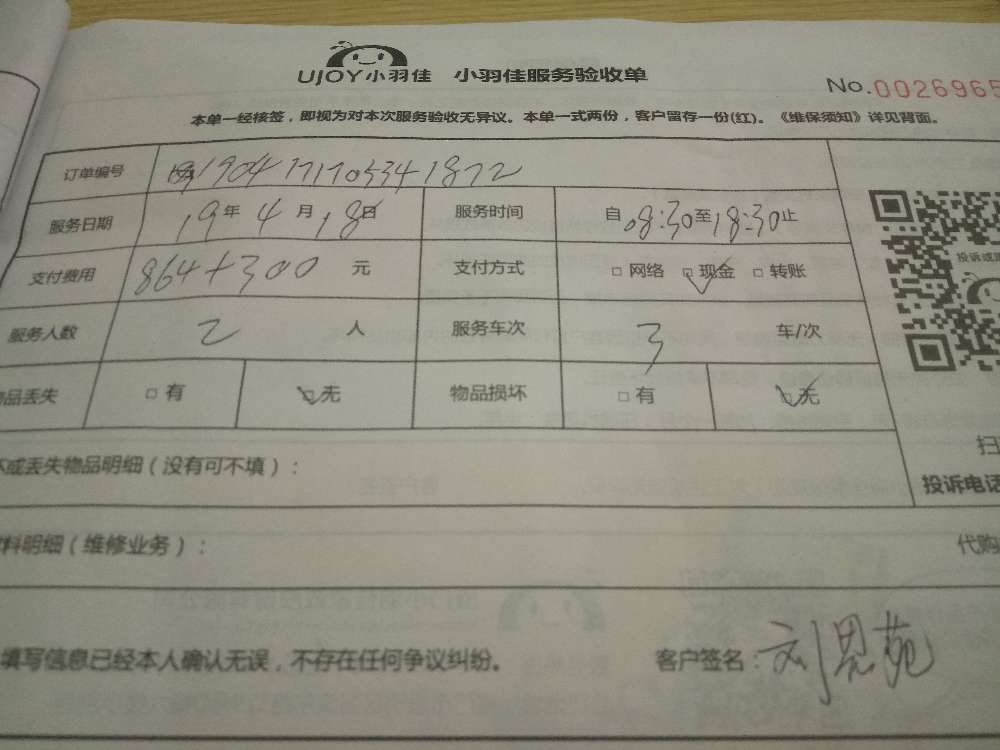 UJOY小羽佳 小羽佳服务验收单
No.0026965
本单一经核签，即视为对本次服务验收无异议。本单一式两份，客户留存一份(红)。《维保须知》详见背面。
订单编号 1904171705341872
服务日期 19年4月18日 服务时间 自08:30至18:30止
支付费用 864+300 元 支付方式 □网络 □现金 □转账
服务人数 2 人 服务车次 3 车/次
品丢失 □有 □无 物品损坏 □有 □无
投诉或
扫
投诉电话
坏或丢失物品明细（没有可不填）：
料明细（维修业务）： 代购
填写信息已经本人确认无误，不存在任何争议纠纷。 客户签名：刘恩苑